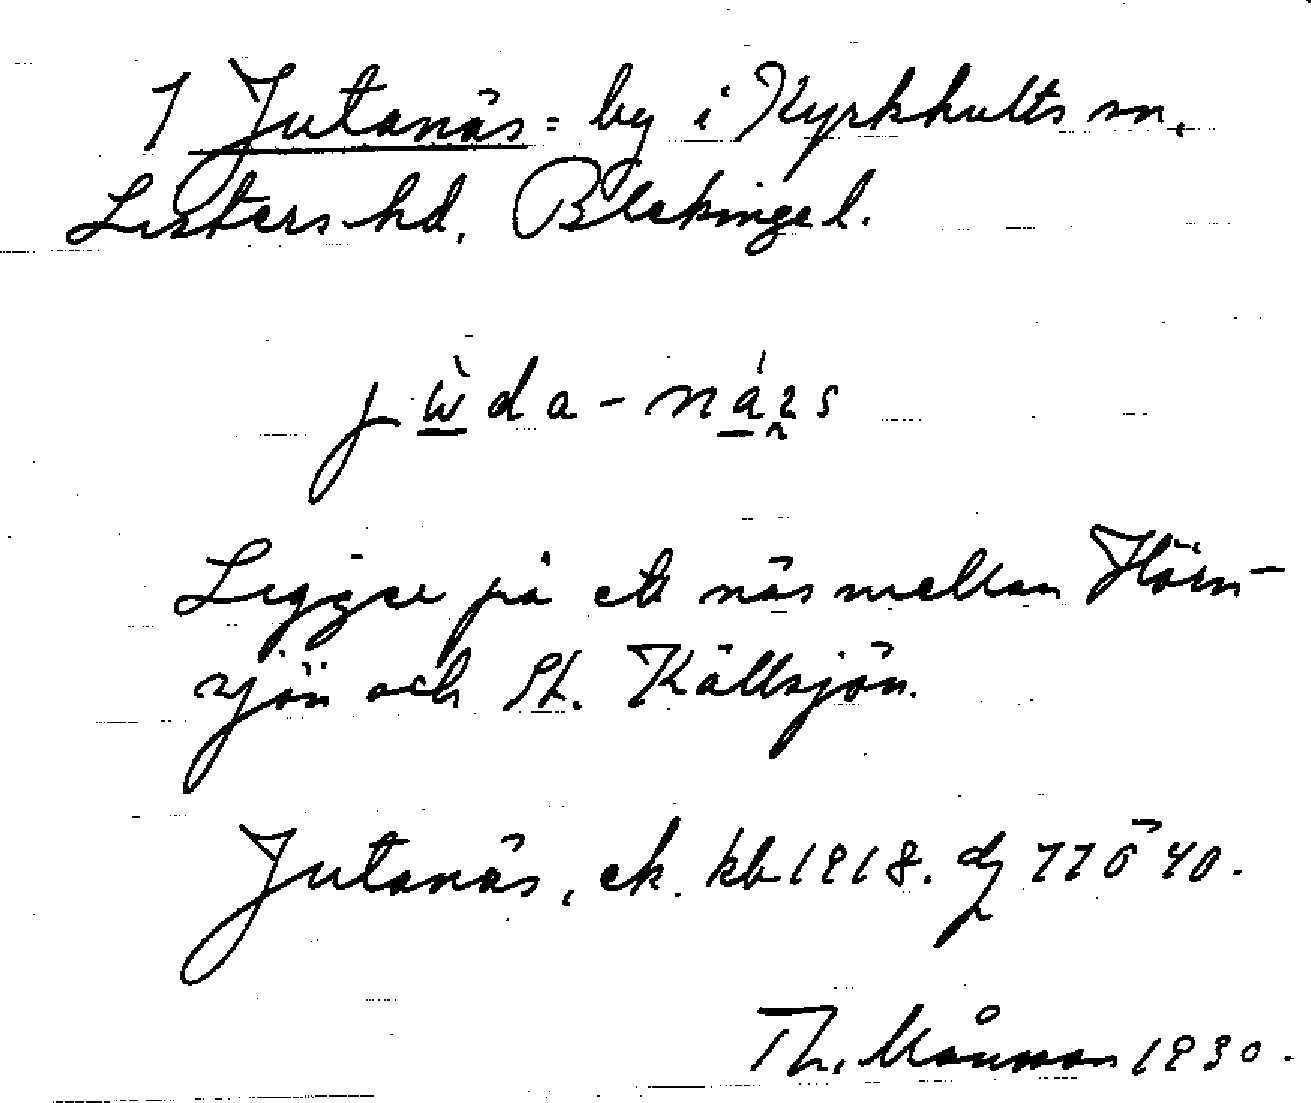 1 Jutanäs = by i Kyrkhults sn,
Listers hd, Blekinge l.
Ligger på ett näs mellan Hörn-
sjön och St. Källsjön.
Jutanäs, ek. kbl 1918.
Th. Månsson 1930.